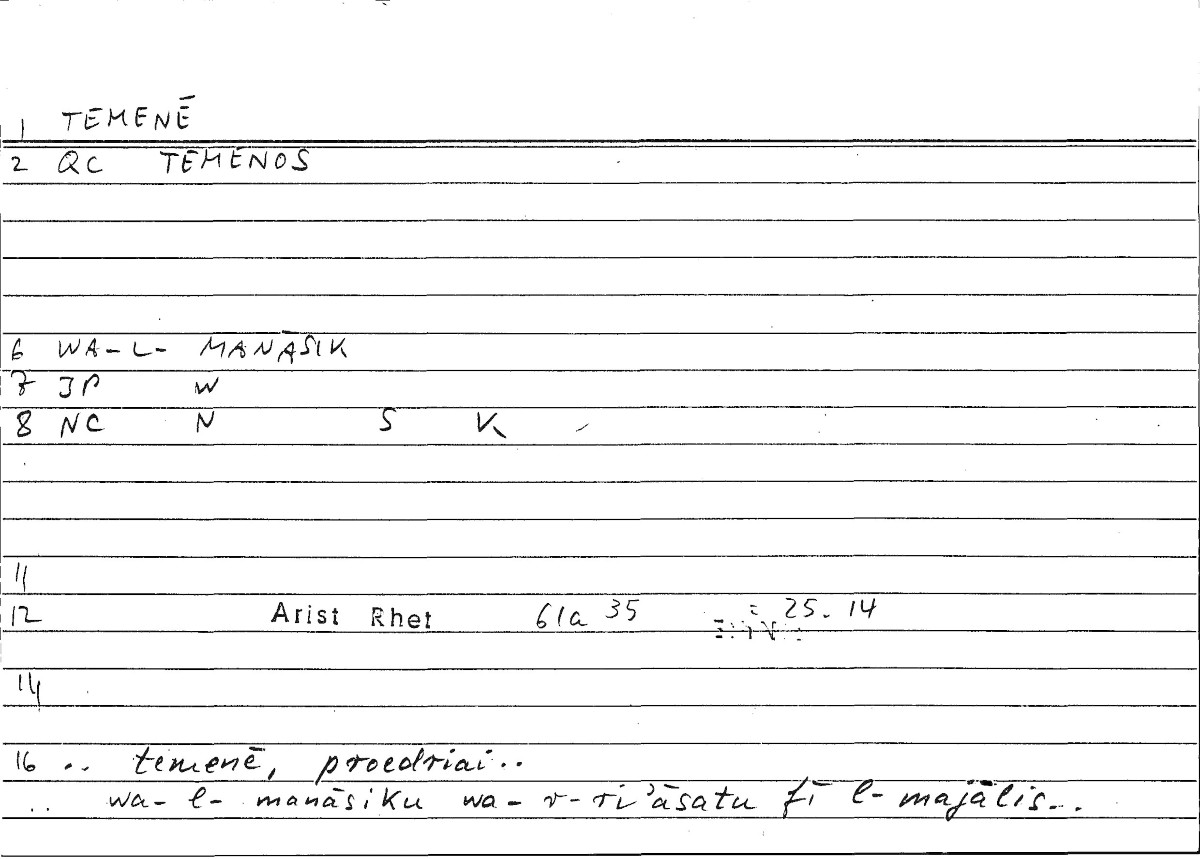 1 TEMENĒ
2 QC TEMENOS
6 WA-L- MANĀSIK
7 JP W
8 NC N S K
11
12 Arist Rhet 61a 35 = 25.14
14
16 .. temenē, proedriai..
.. wa-l-manāsiku wa-r-ri'āsatu fī l-majālis..